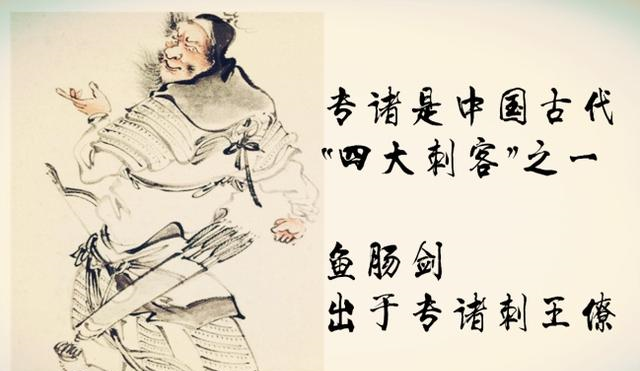 专诸是中国古代
“四大刺客”之一
鱼肠剑
出于专诸刺王僚